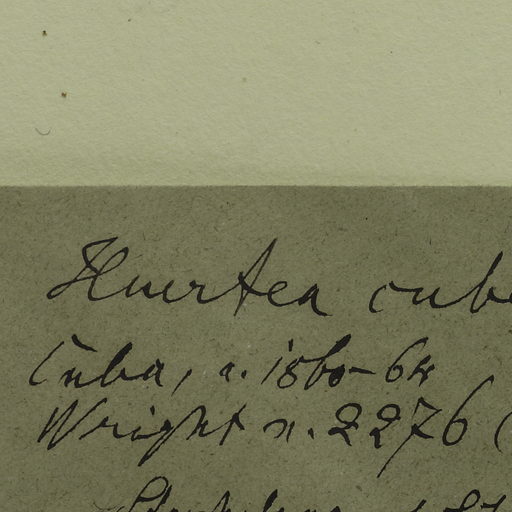 Huertea cube
Cuba, a. 1860-64
Wright n. 2276 (